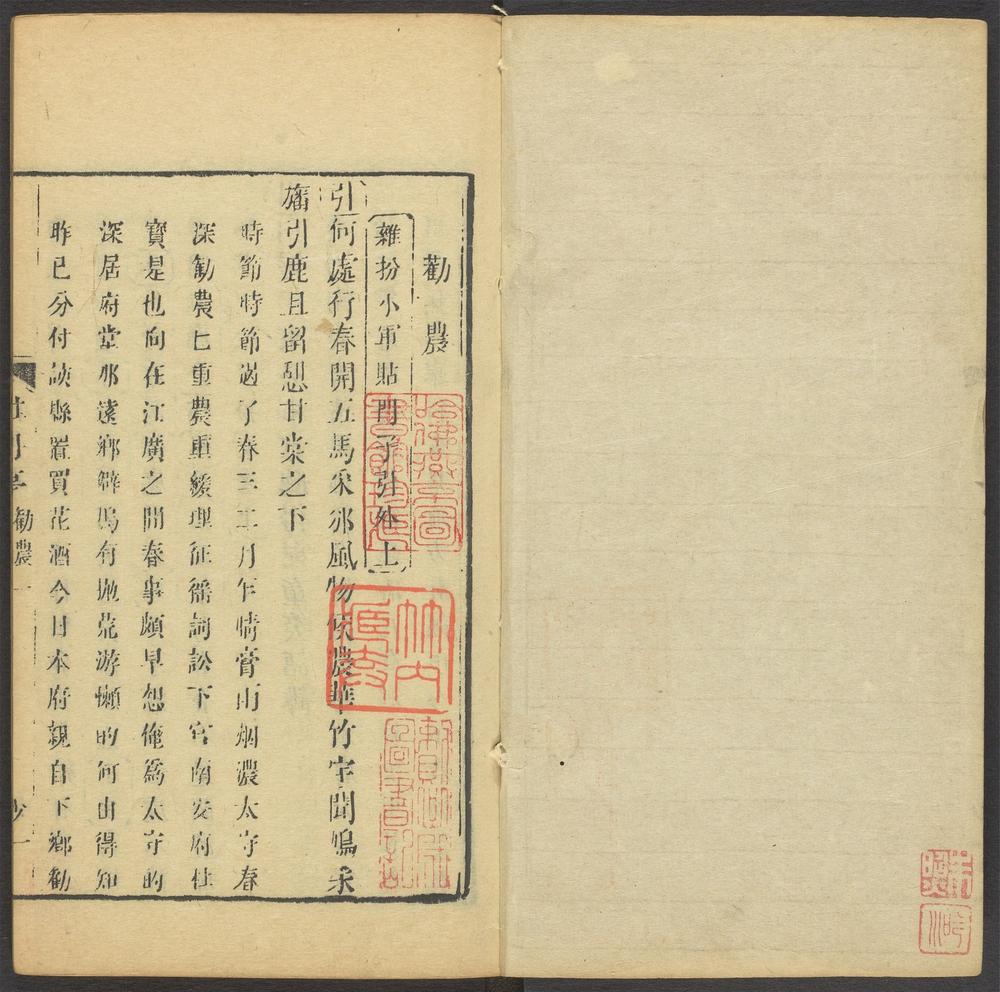 勸農
雜扮小軍貼門子引外上
引何處行春開五馬采邠風物候農華竹宇聞鳩朱
旛引鹿且留憩甘棠之下
時節時節過了春三二月乍晴膏雨烟濃太守春
深勸農匕重農重緩理征徭詞訟下官南安府杜
寶是也向在江廣之間春事頗早想俺爲太守的
深居府堂那遠鄉僻塢有抛荒游懶的何由得知
昨已分付該縣置買花酒今日本府親自下鄉勸
牡丹亭 勸農 一
哈佛燕京圖書館
竹內
圖書記